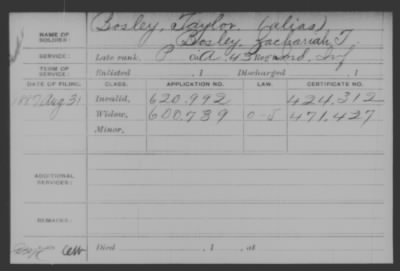 NAME OF SOLDIER: Bosley, Taylor (alias)
Bosley, Zachariah T.
SERVICE: Late rank, P Co. A, 43 Reg't Ind. Inf
TERM OF SERVICE: Enlisted , 1 Discharged , 1
DATE OF FILING. CLASS. APPLICATION NO. LAW. CERTIFICATE NO.
1887 Aug 31 Invalid, 620.992 424.312
Widow, 600.739 471.427
Minor,
ADDITIONAL SERVICES:
REMARKS:
Died , 1 , at